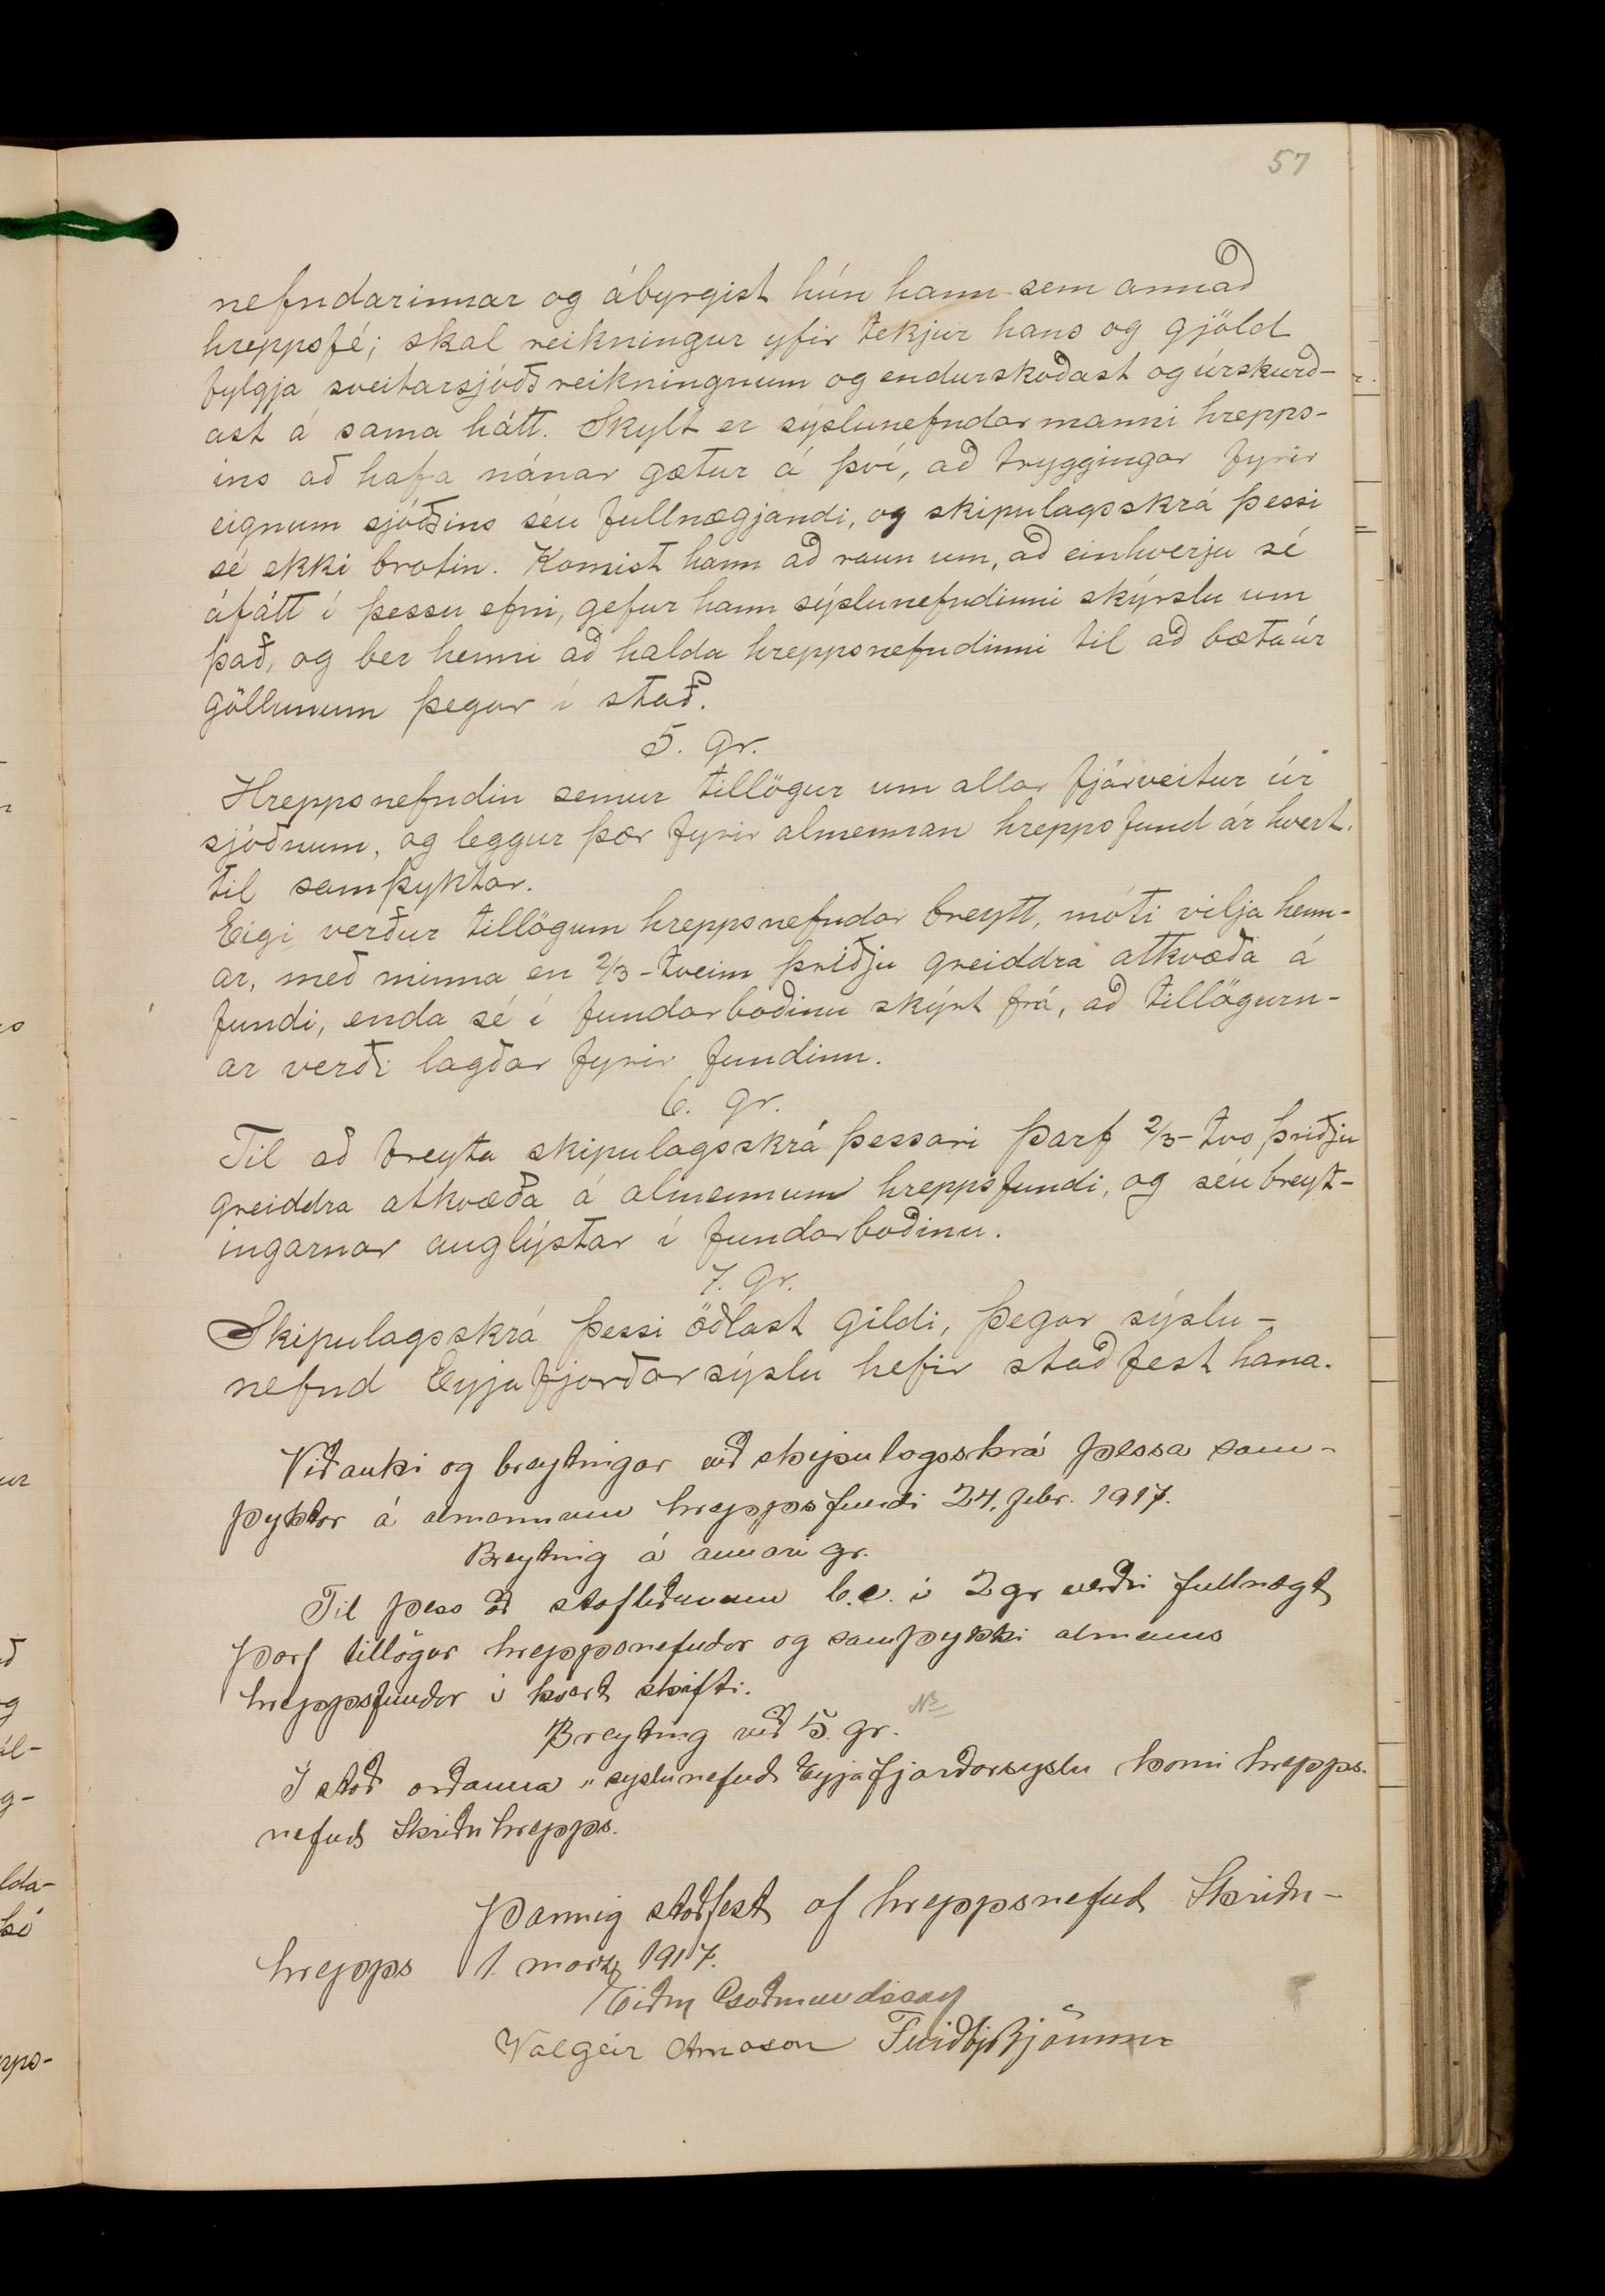 57
nefndarinnar og ábyrgist hún hann sem annað
hreppsfé; skal reikningur yfir tekjur hans og gjöld
fylgja sveitarsjóðsreikningnum og endurskoðast og úrskurð-
ast á sama hátt. Skylt er sýslunefndarmanni hrepps-
ins að hafa nánar gætur á því, að tryggingar fyrir
eignum sjóðsins séu fullnægjandi, og skipulagsskrá þessi
sé ekki brotin. Komist hann að raun um, að einhverju sé
áfátt í þessu efni, gefur hann sýslunefndinni skýrslu um
það, og ber henni að halda hreppsnefndinni til að bæta úr
göllunum þegar í stað.
5. gr.
Hreppsnefndin semur tillögur um allar fjárveitur úr
sjóðnum, og leggur þær fyrir almennan hreppsfund ár hvert.
til samþyktar.
Eigi verður tillögum hreppsnefndar breytt, móti vilja henn-
ar, með minna en 2/3 - tveim þriðju greiddra atkvæða á
fundi, enda sé í fundarboðinu skýrt frá, að tillögurn-
ar verði lagðar fyrir fundinn.
6. gr.
Til að breyta skipulagsskrá þessari þarf 2/3 - tvo þriðju
greiddra atkvæða á almennum hreppsfundi, og séu breyt-
ingarnar auglýstar í fundarboðinu.
7. gr.
Skipulagsskrá þessi öðlast gildi, þegar sýslu-
nefnd Eyjafjarðarsýslu hefir staðfest hana.
Viðauki og breytingar við skipulagsskrá þessa sam-
þyktar á almennum hreppsfundi 24. febr. 1917.
Breyting á annari gr.
Til þess að stafliðunum b.c. í 2 gr verði fullnægt
þarf tillögur hreppsnefndar og samþykki almenns
hreppsfundar í hvert skifti.
Breyting við 5. gr. NB
Í stað orðanna „syslunefnd Eyjafjarðarsyslu komi hrepps-
nefnd Skriðuhrepps.
Þannig staðfest af hreppsnefnd Skriðu-
hrepps 1. marz 1917.
Eiður Guðmundsson
Valgeir Árnason Friðbj Björnsson